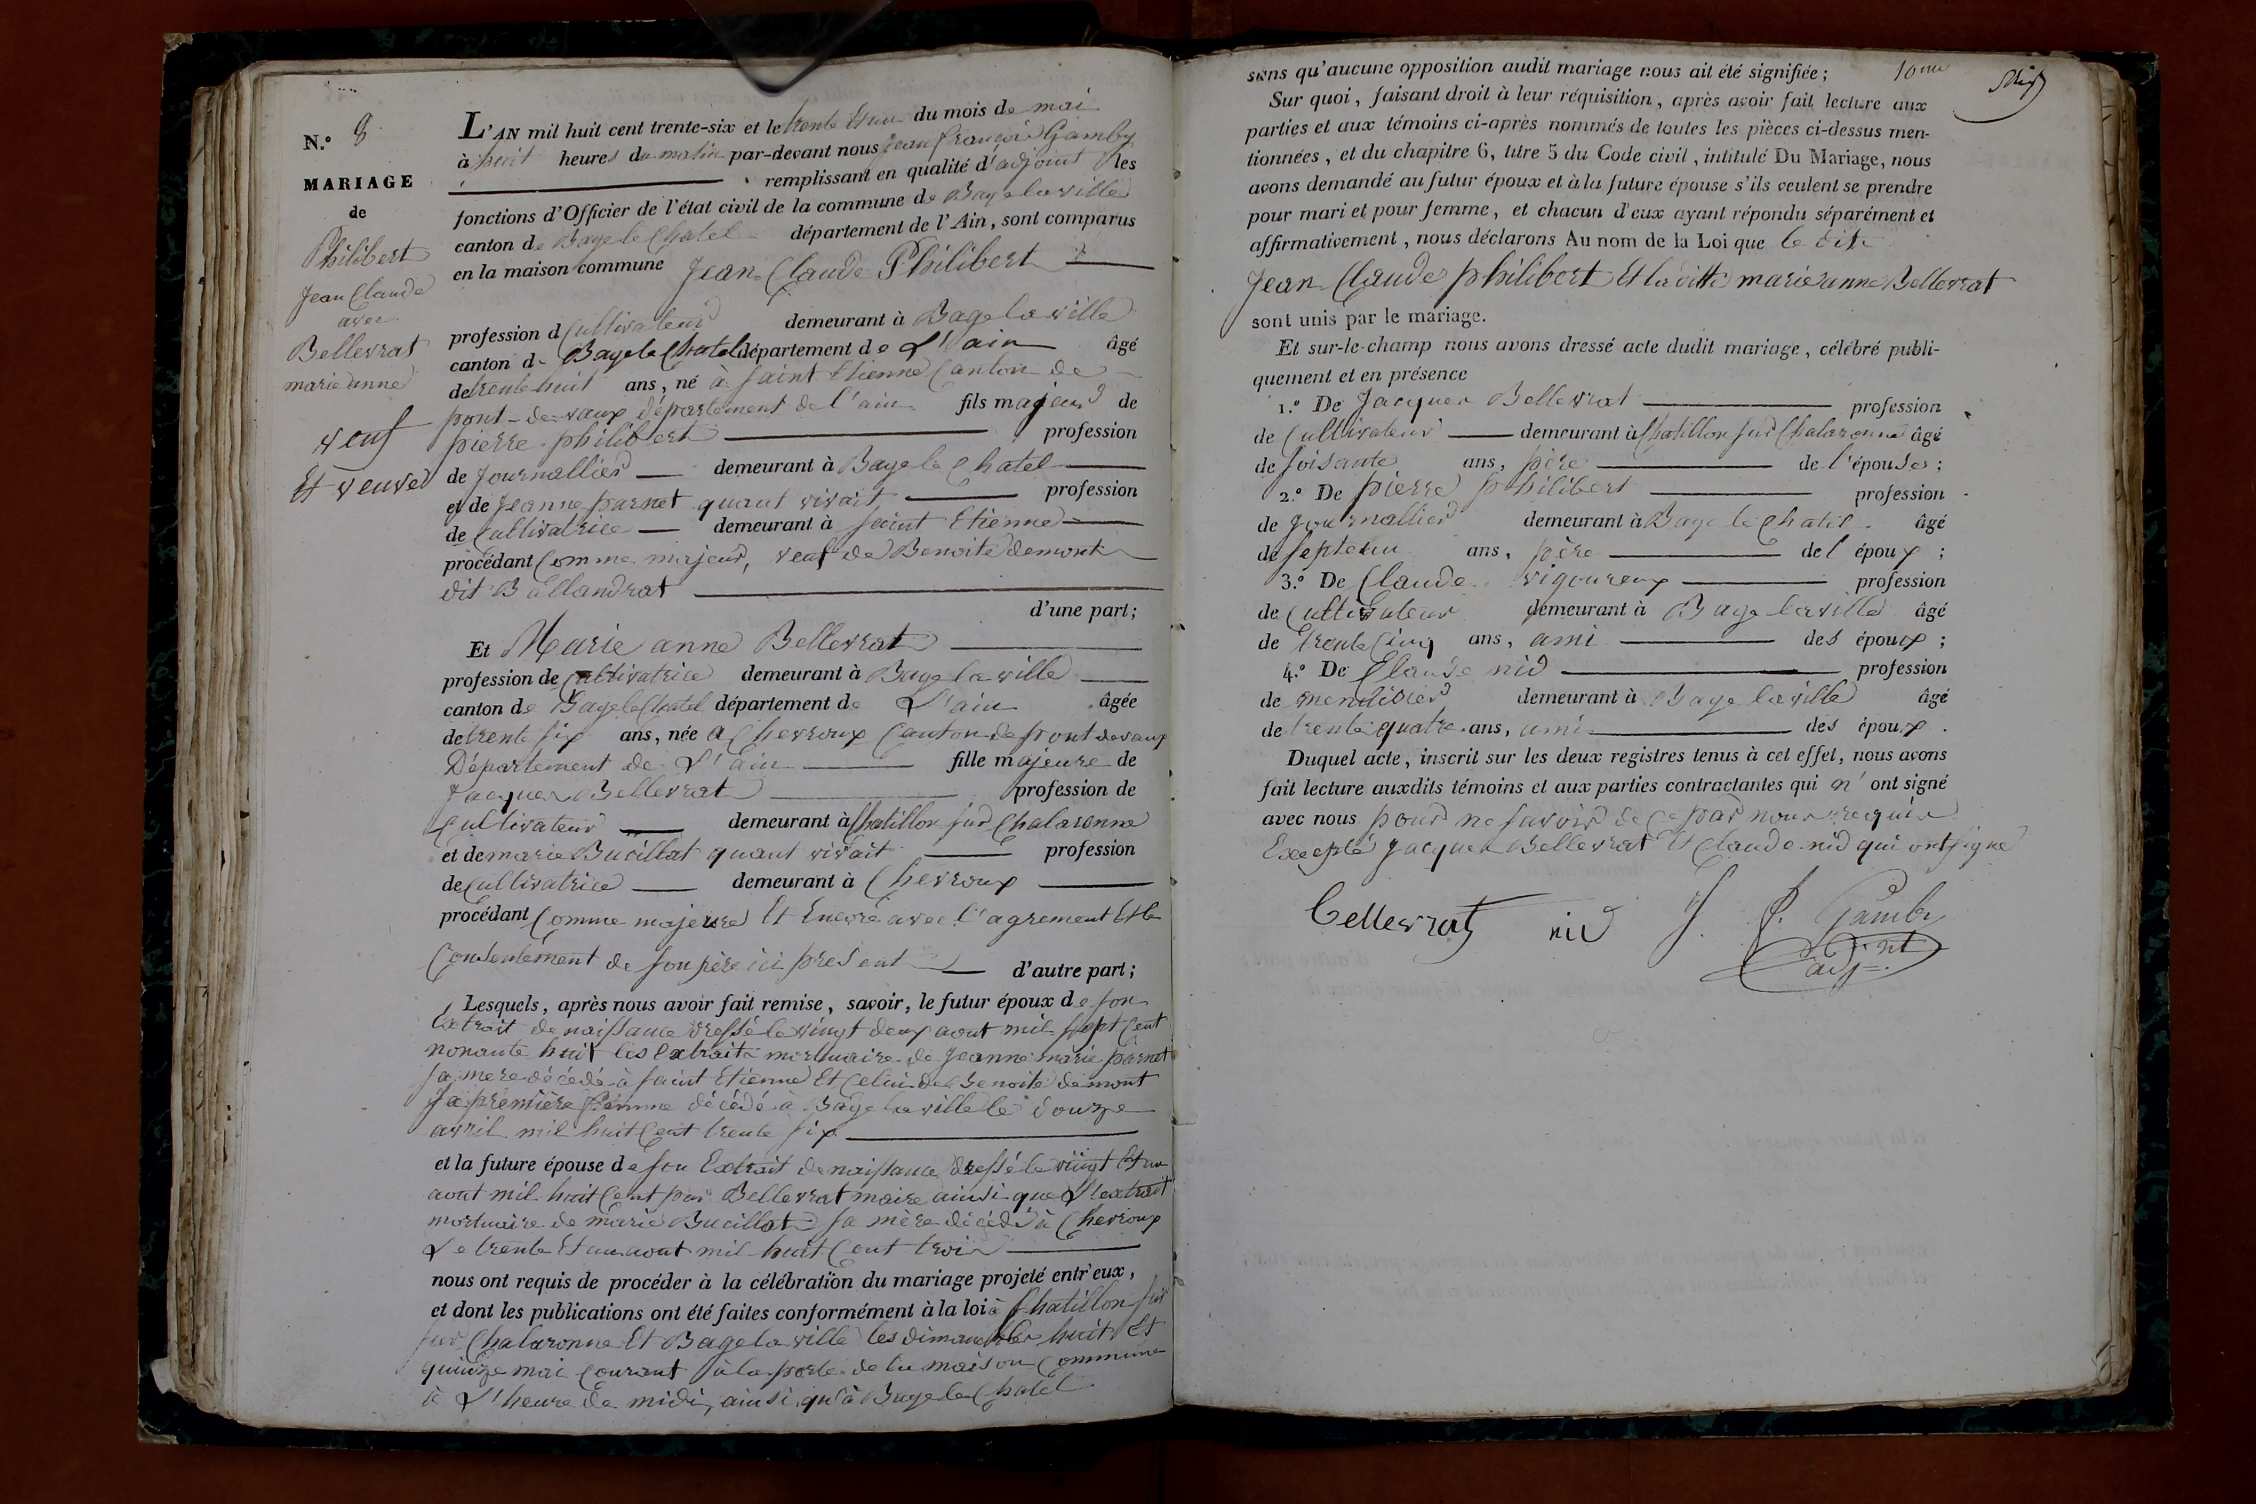 N.º 8
MARIAGE
de
Philibert
Jean Claude
avec
Bellevrat
marie anne
veuf
Et veuve
L'AN mil huit cent trente-six et le trente Et un du mois de mai
à huit heures du matin par-devant nous jean françois Gamby
remplissant en qualité d'adjoint les
fonctions d'Officier de l'état civil de la commune de Bage la ville
canton de Bage le Chatel département de l'Ain, sont comparus
en la maison commune Jean Claude Philibert
profession d Cultivateur demeurant à Bage la ville
canton de Bage le Chatel département de L'ain âgé
de trente huit ans, né à Saint Etienne Canton de
pont-de-vaux département de l'ain fils majeur de
pierre philibert profession
de Journallier demeurant à Bage le Chatel
et de Jeanne parnet quant vivait profession
de Cultivatrice demeurant à Saint Etienne
procédant Comme majeur, veuf de Benoite demont
dit Ballandrat
d'une part;
Et Marie anne Bellevrat
profession de Cultivatrice demeurant à Bage la ville
canton de Bage le Chatel département de L'ain âgée
de trente six ans, née a Chevroux Canton de pont de vaux
Département de L'ain fille majeure de
Jacques Bellevrat profession de
Cultivateur demeurant à Chatillon sur Chalaronne
et de marie Bucillat quant vivait profession
de Cultivatrice demeurant à Chevroux
procédant Comme majeure Et Encore avec l'agrement Et le
Consentement de son père ici présent d'autre part;
Lesquels, après nous avoir fait remise, savoir, le futur époux de son
Extrait de naissance dressé le vingt deux aout mil sept Cent
nonante huit les Extraits mortuaire de Jeanne marie parnet
sa mere décédé à Saint Etienne Et celui de Benoite demont
sa première femme décédé à Bage la ville le douze
avril mil huit Cent trente six
et la future épouse de son Extrait de naissance dressé le vingt Et un
aout mil huit Cent par Bellevrat maire ainsi que L'extrait
mortuaire de marie Bucillat sa mère décédé à Chevroux
Le trente Et un aout mil huit Cent trois
nous ont requis de procéder à la célébration du mariage projeté entr'eux,
et dont les publications ont été faites conformément à la loi à Chatillon sur
sur Chalaronne Et Bage la ville les dimanches huit Et
quinze mai Courant à la porte de la maison Commune
à L'heure de midi, ainsi qu'à Bage le Chatel
10me
sans qu'aucune opposition audit mariage nous ait été signifiée;
Sur quoi, faisant droit à leur réquisition, après avoir fait lecture aux
parties et aux témoins ci-après nommés de toutes les pièces ci-dessus men-
tionnées, et du chapitre 6, titre 5 du Code civil, intitulé Du Mariage, nous
avons demandé au futur époux et à la future épouse s'ils veulent se prendre
pour mari et pour femme, et chacun d'eux ayant répondu séparément et
affirmativement, nous déclarons Au nom de la Loi que le dit
Jean Claude philibert Et la ditte marie anne Bellevrat
sont unis par le mariage.
Et sur-le-champ nous avons dressé acte dudit mariage, célébré publi-
quement et en présence
1.º De Jacques Bellevrat profession
de Cultivateur demeurant à Chatillon sur Chalaronne âgé
de soisante ans, père de l'épouse;
2.º De pierre philibert profession
de Journallier demeurant à Bage le Chatel âgé
de septe un ans, père de l époux;
3.º De Claude vigoureux profession
de Cultivateur demeurant à Bage la ville âgé
de trente Cinq ans, ami des époux;
4.º De Claude nid profession
de menuisier demeurant à Bage la ville âgé
de trente quatre ans, ami des époux.
Duquel acte, inscrit sur les deux registres tenus à cet effet, nous avons
fait lecture auxdits témoins et aux parties contractantes qui n'ont signé
avec nous pour ne savoir de Ce par nous requis
Excepté Jacques Bellevrat Et Claude nid qui ont signé
bellevrat nid J. f. Gamby
adjnt